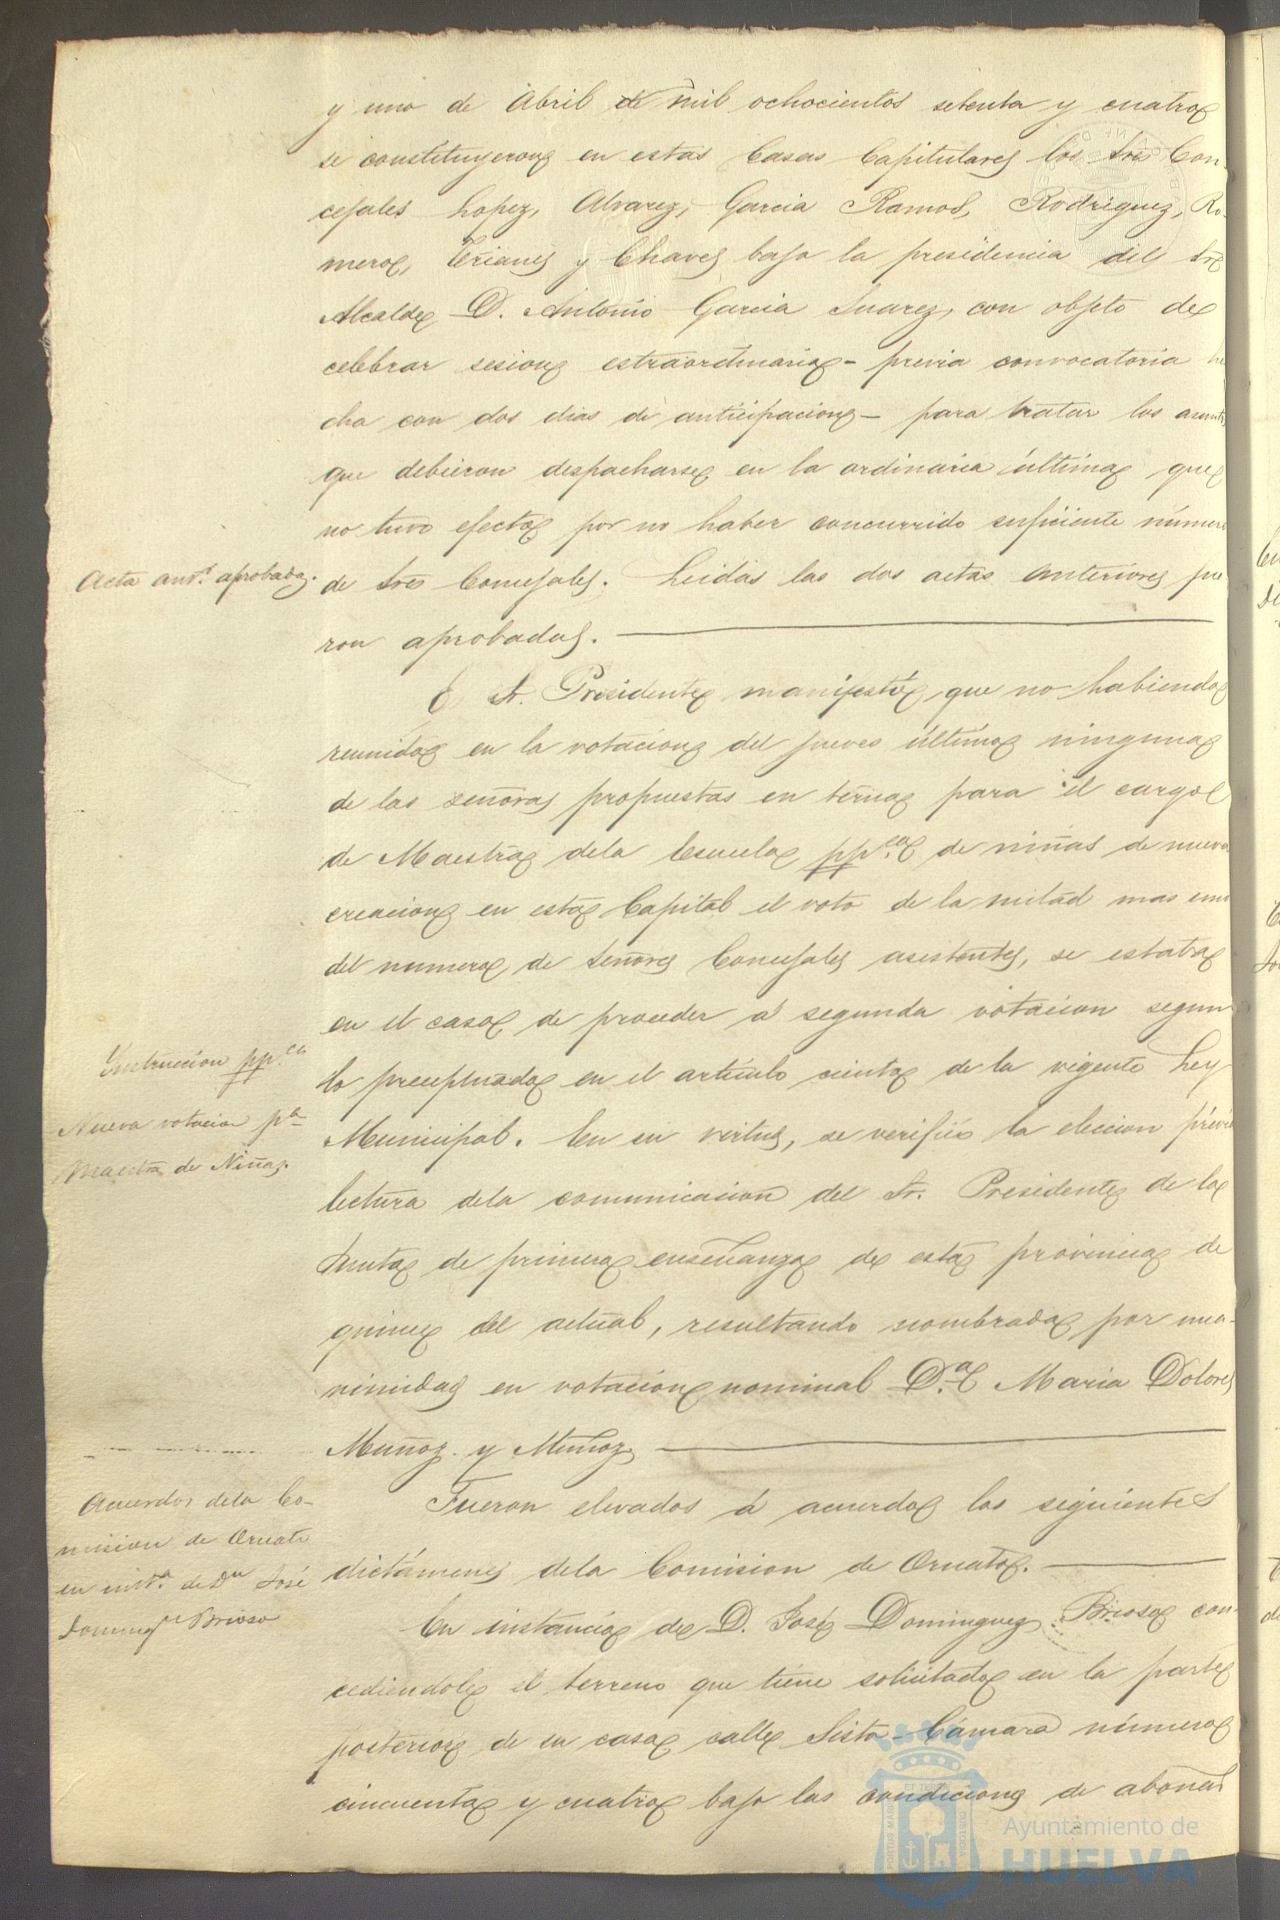 y uno de Abril de mil ochocientos setenta y cuatro
se constituyeron en estas Casas Capitulares los Sres Con-
cejales Lopez, Alvarez, Garcia Ramos, Rodriguez, Ro-
mero, Trianes y Chaves bajo la presidencia del Sr
Alcalde D. Antonio Garcia Suarez, con objeto de
celebrar sesion estraordinaria - previa convocatoria he
cha con dos dias de anticipacion - para tratar los asuntos
que debieron despacharse en la ordinaria última que
no tuvo efecto por no haber concurrido suficiente número
Acta antr. aprobada.
de Sres Concejales. Leidas las dos actas anteriores fue
ron aprobadas.
Sr. Presidente manifestó que no habiendo
reunido en la votacion del jueves último ninguna
de las señoras propuestas en terna para el cargo
de Maestra dela Escuela ppca de niñas de nueva
creacion en esta Capital el voto de la mitad mas uno
del numero de señores Concejales asistentes, se estaba
en el caso de proceder á segunda votacion segun
Instruccion ppca
Nueva votacion pa
Maestra de Niñas.
lo preceptuado en el artículo ciento de la vigente Ley
Municipal. En su virtud, se verificó la eleccion prévia
lectura dela comunicacion del Sr. Presidente de la
Junta de primera enseñanza de esta provincia de
quince del actual, resultando nombrada por una-
nimidad en votacion nominal D.a Maria Dolores
Muñoz y Muñoz
Acuerdos dela Co-
mision de Ornato
en insta. de Dn José
Domingz Brioso
Fueron elevados á acuerdo los siguientes
dictámenes dela Comision de Ornato.
En instancia de D. José Dominguez Brioso con-
cediendole el terreno que tiene solicitado en la parte
posterior de su casa calle Sisto Cámara número
cincuenta y cuatro bajo las condiciones de abonar
PORTUS MARIS ET TERRAE CUSTODIA
Ayuntamiento de
HUELVA